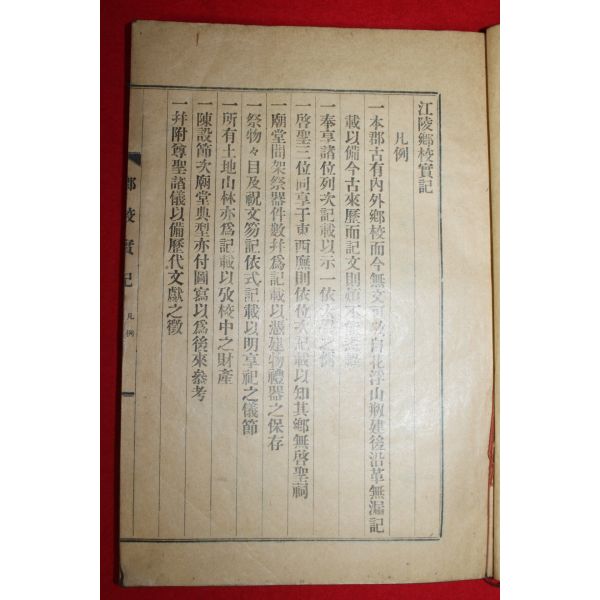 江陵鄕校實記
凡例
一本郡古有內外鄕校而今無文可攷自花浮山刱建後沿革無漏記
載以備今古來歷而記文則煩不
一奉享諸位列次記載以示一依
一啓聖三位同享于東西廡則依位次記載以知其鄕無啓聖祠
一廟堂間架祭器件數幷爲記載以憑建物禮器之保存
一祭物々目及祝文笏記依式記載以明享祀之儀節
一所有土地山林亦爲記載以攷校中之財產
一陳設節次廟堂典型亦付圖寫以爲後來參考
一幷附尊聖諸儀以備歷代文獻之徵
鄕校實記
凡例